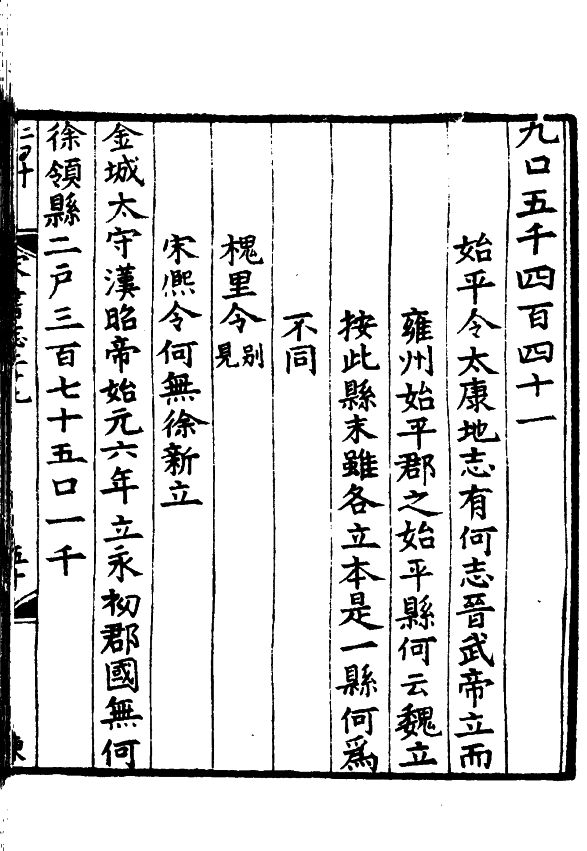 九口五千四百四十一
始平令太康地志有何志晉武帝立而
雍州始平郡之始平縣何云魏立
按此縣末雖各立本是一縣何爲
不同
槐里令別見
宋熈令何無徐新立
金城太守漢昭帝始元六年立永初郡國無何
徐領縣二戶三百七十五口一千